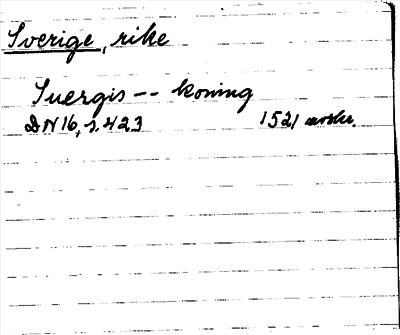 Sverige, rike
Suergis -- koning
DN 16, s. 423 1521 avskr.